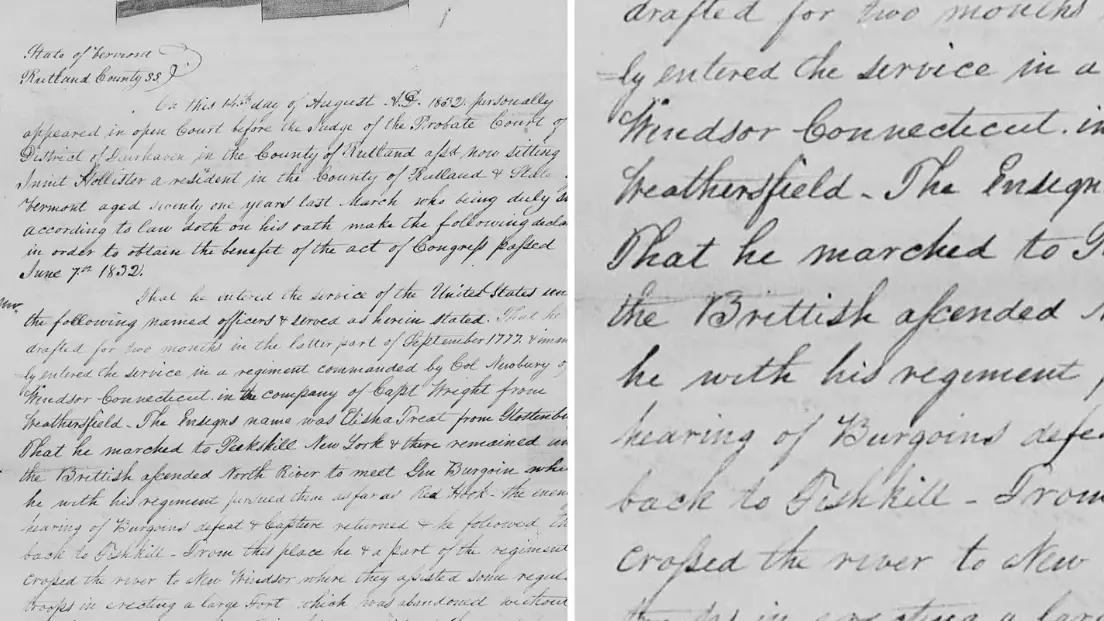 State of Vermont
Rutland County SS
On this 14th day of August A.D. 1832. personally
appeared in open Court before the Judge of the Probate Court of
District of Fairhaven in the County of Rutland afsd, now sitting
Hollister a resident in the County of Rutland & State
Vermont aged seventy one years last March who being duly
according to law doth on his oath make the following
in order to obtain the benefit of the act of Congress passed
June 7th 1832.
That he entered the service of the United States
the following named officers & served as herein stated. That he
drafted for two months in the latter part of September 1777 &
ly entered the service in a regiment commanded by Col Newbury of
Windsor Connecticut. in the company of Capt Wright from
Weathersfield - The Ensigns name was Elisha Treat from
That he marched to Peekskill New York & there remained
the Brittish ascended North River to meet Gen Burgoin
he with his regiment pursued them as far as Red Hook - the
hearing of Burgoins defeat & Capture returned & he followed
back to Fishkill - From this place he & a part of the regiment
crossed the river to New Windsor where they assisted some
troops in erecting a large Fort which was abandoned without
drafted for two months
ly entered the service in a
Windsor Connecticut. in
Weathersfield - The Ensigns
That he marched to
the Brittish ascended
he with his regiment
hearing of Burgoins
back to Fishkill - From
crossed the river to New
in erecting a